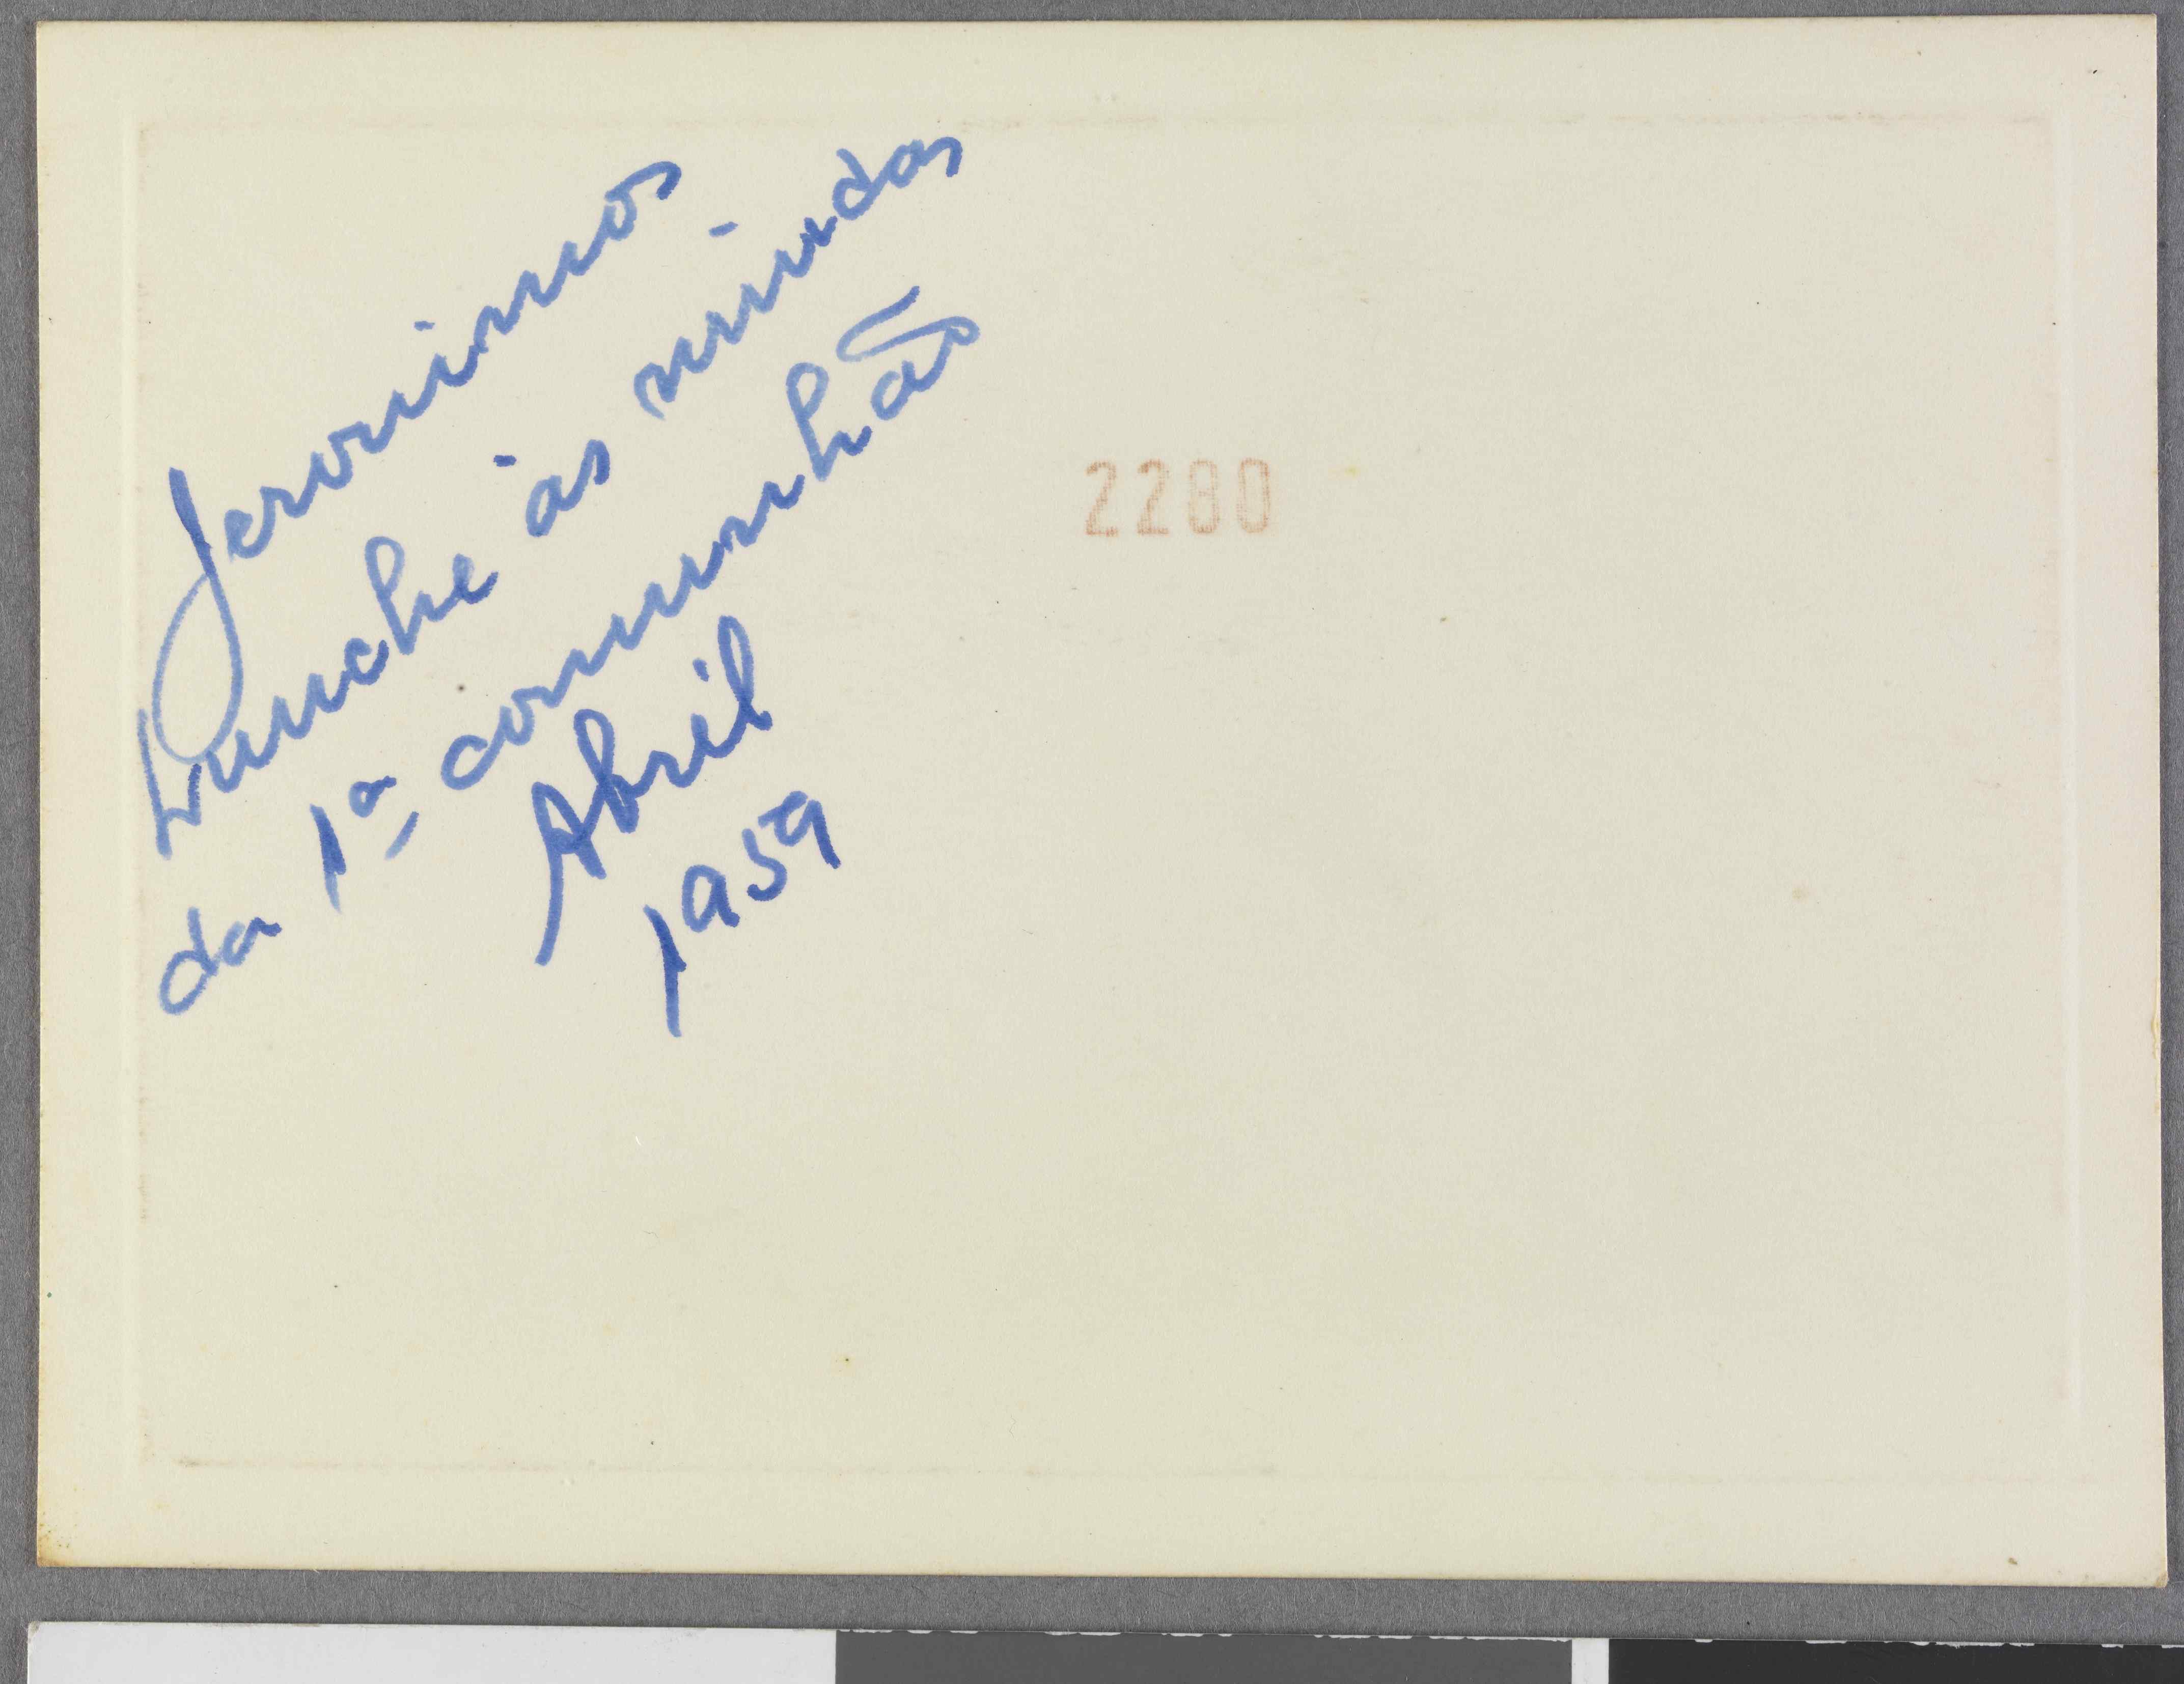 Jeronimos
Lunche às miudas
da 1ª comunhão
Abril
1959
2280